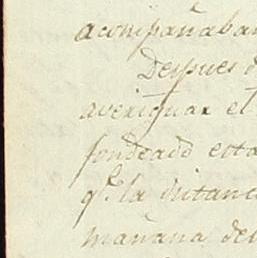 acompañaban
Despues d
averiguar el
fondeado esta
q.e la distanc
mañana del